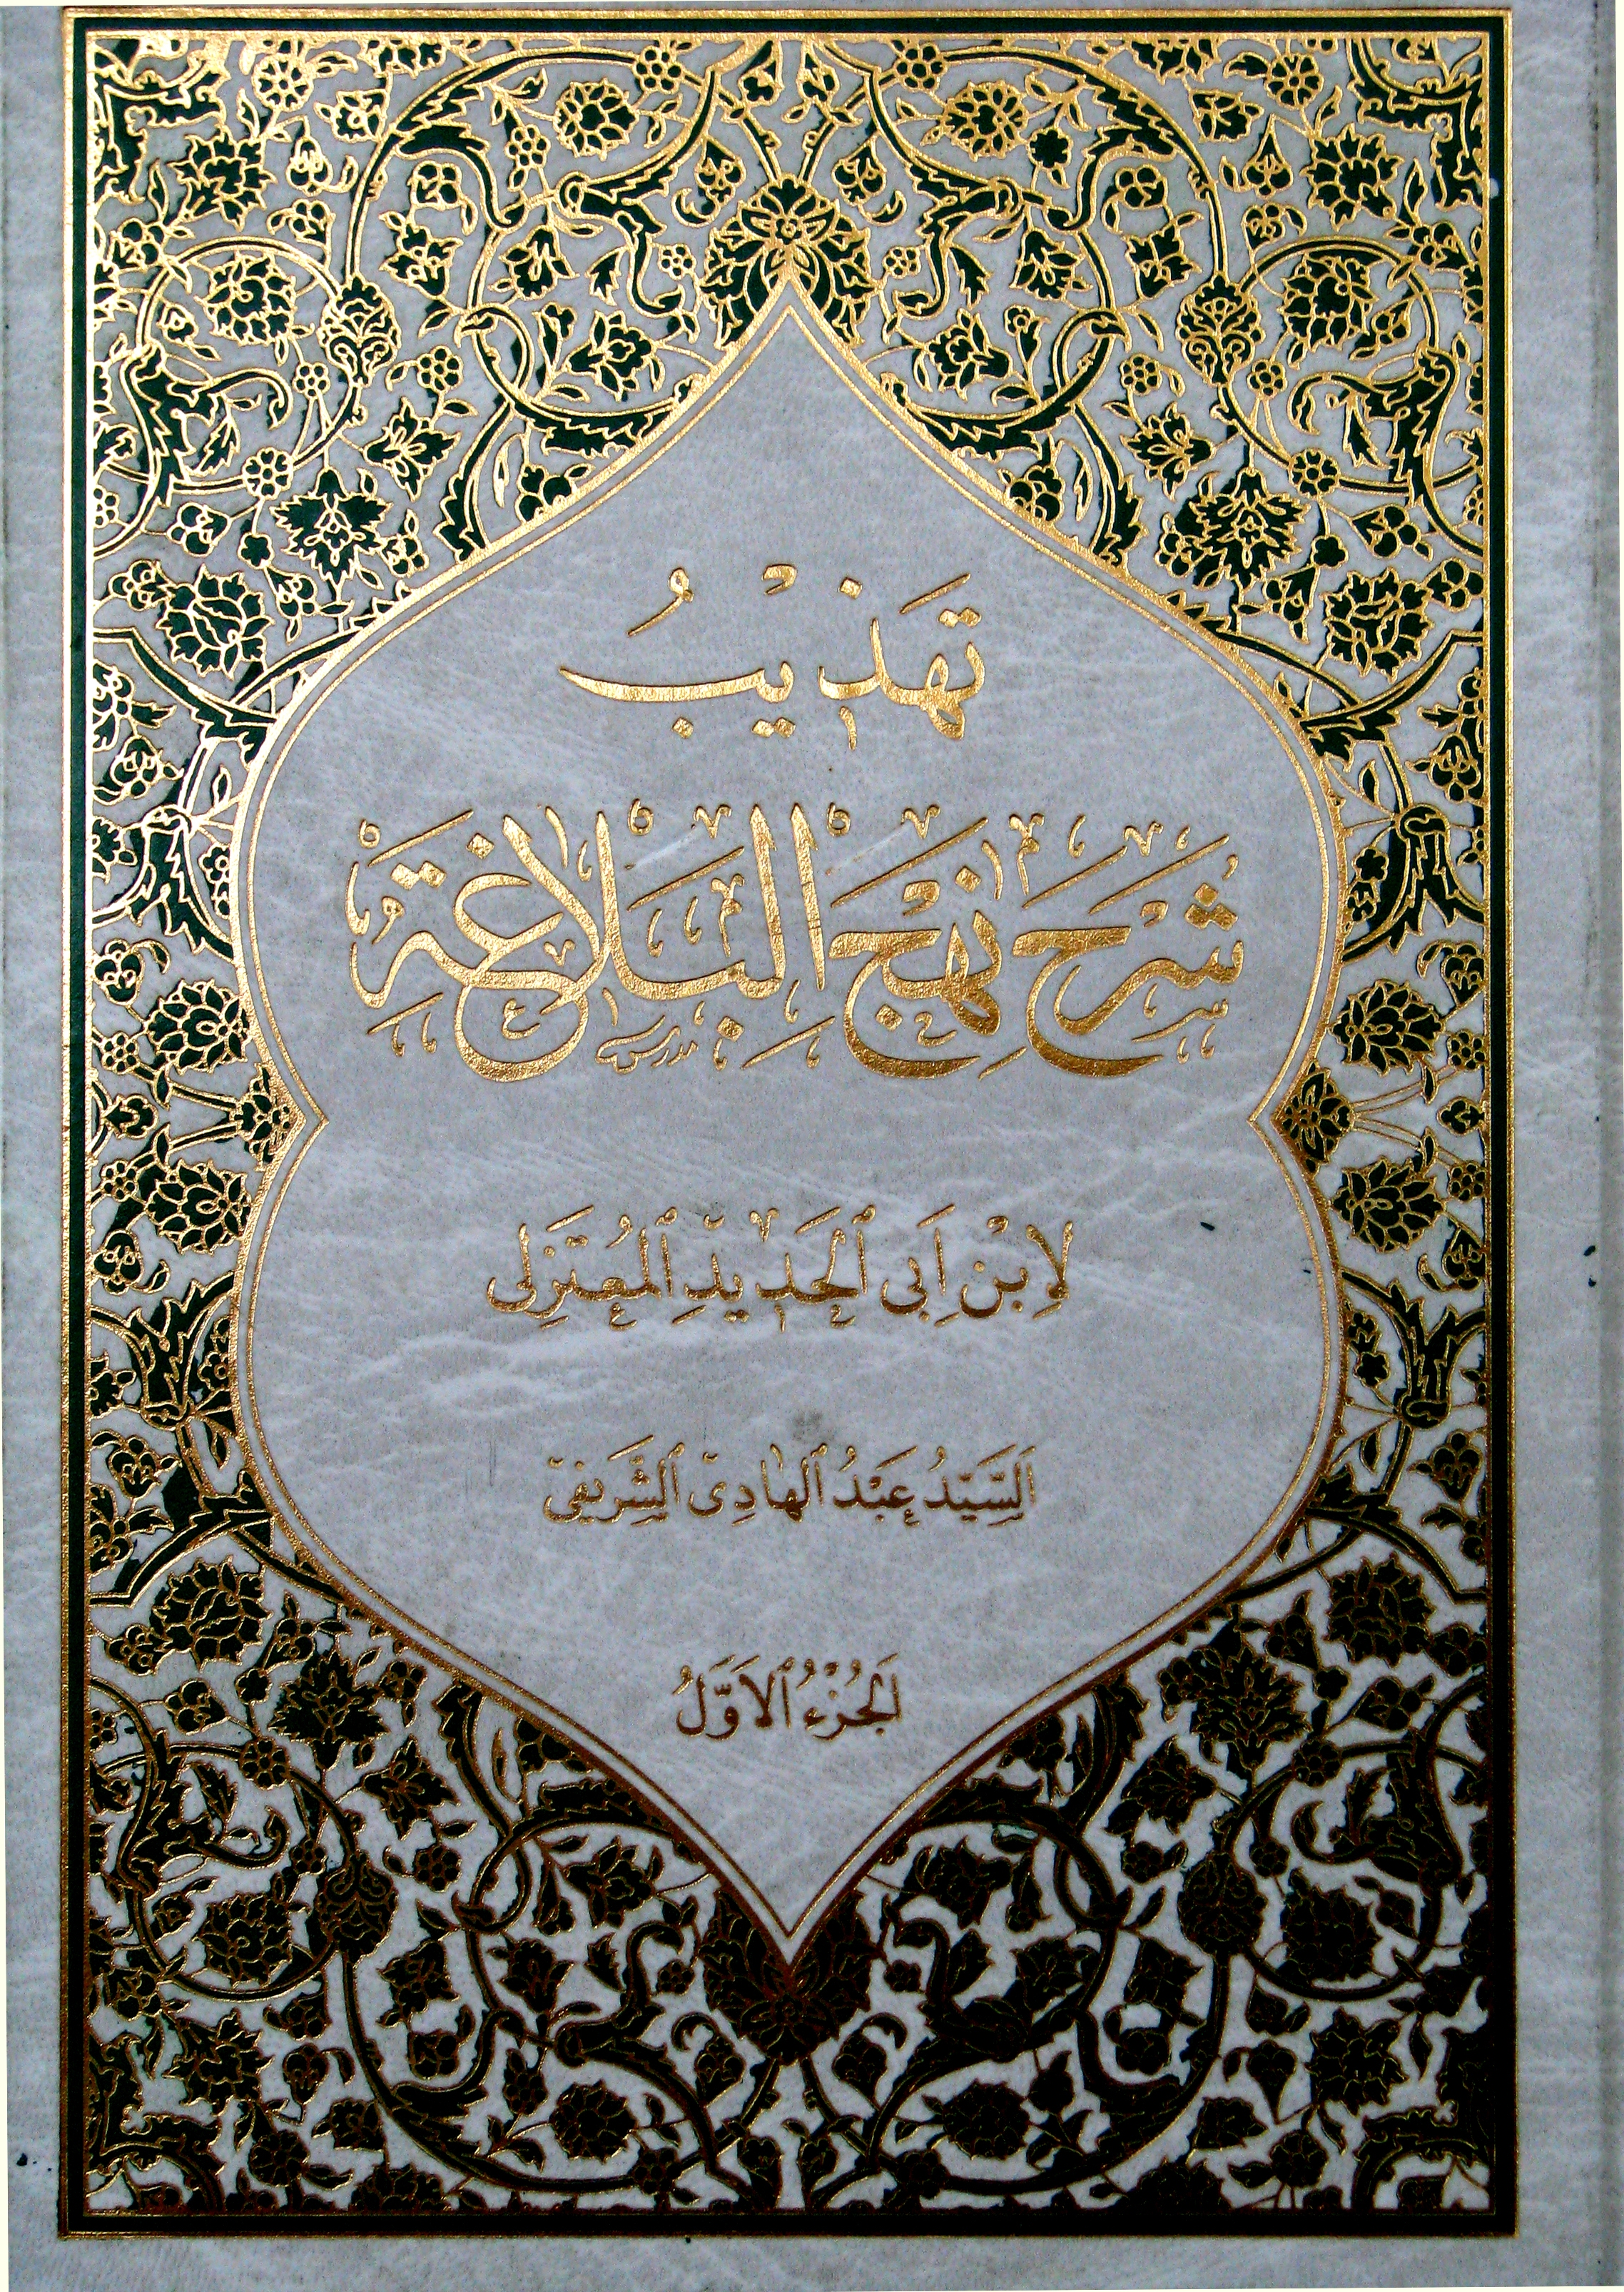 تهذيب
شرح نهج البلاغة
لابن ابى الحديد المعتزلى
السيد عبد الهادى الشريفى
الجزء الاول